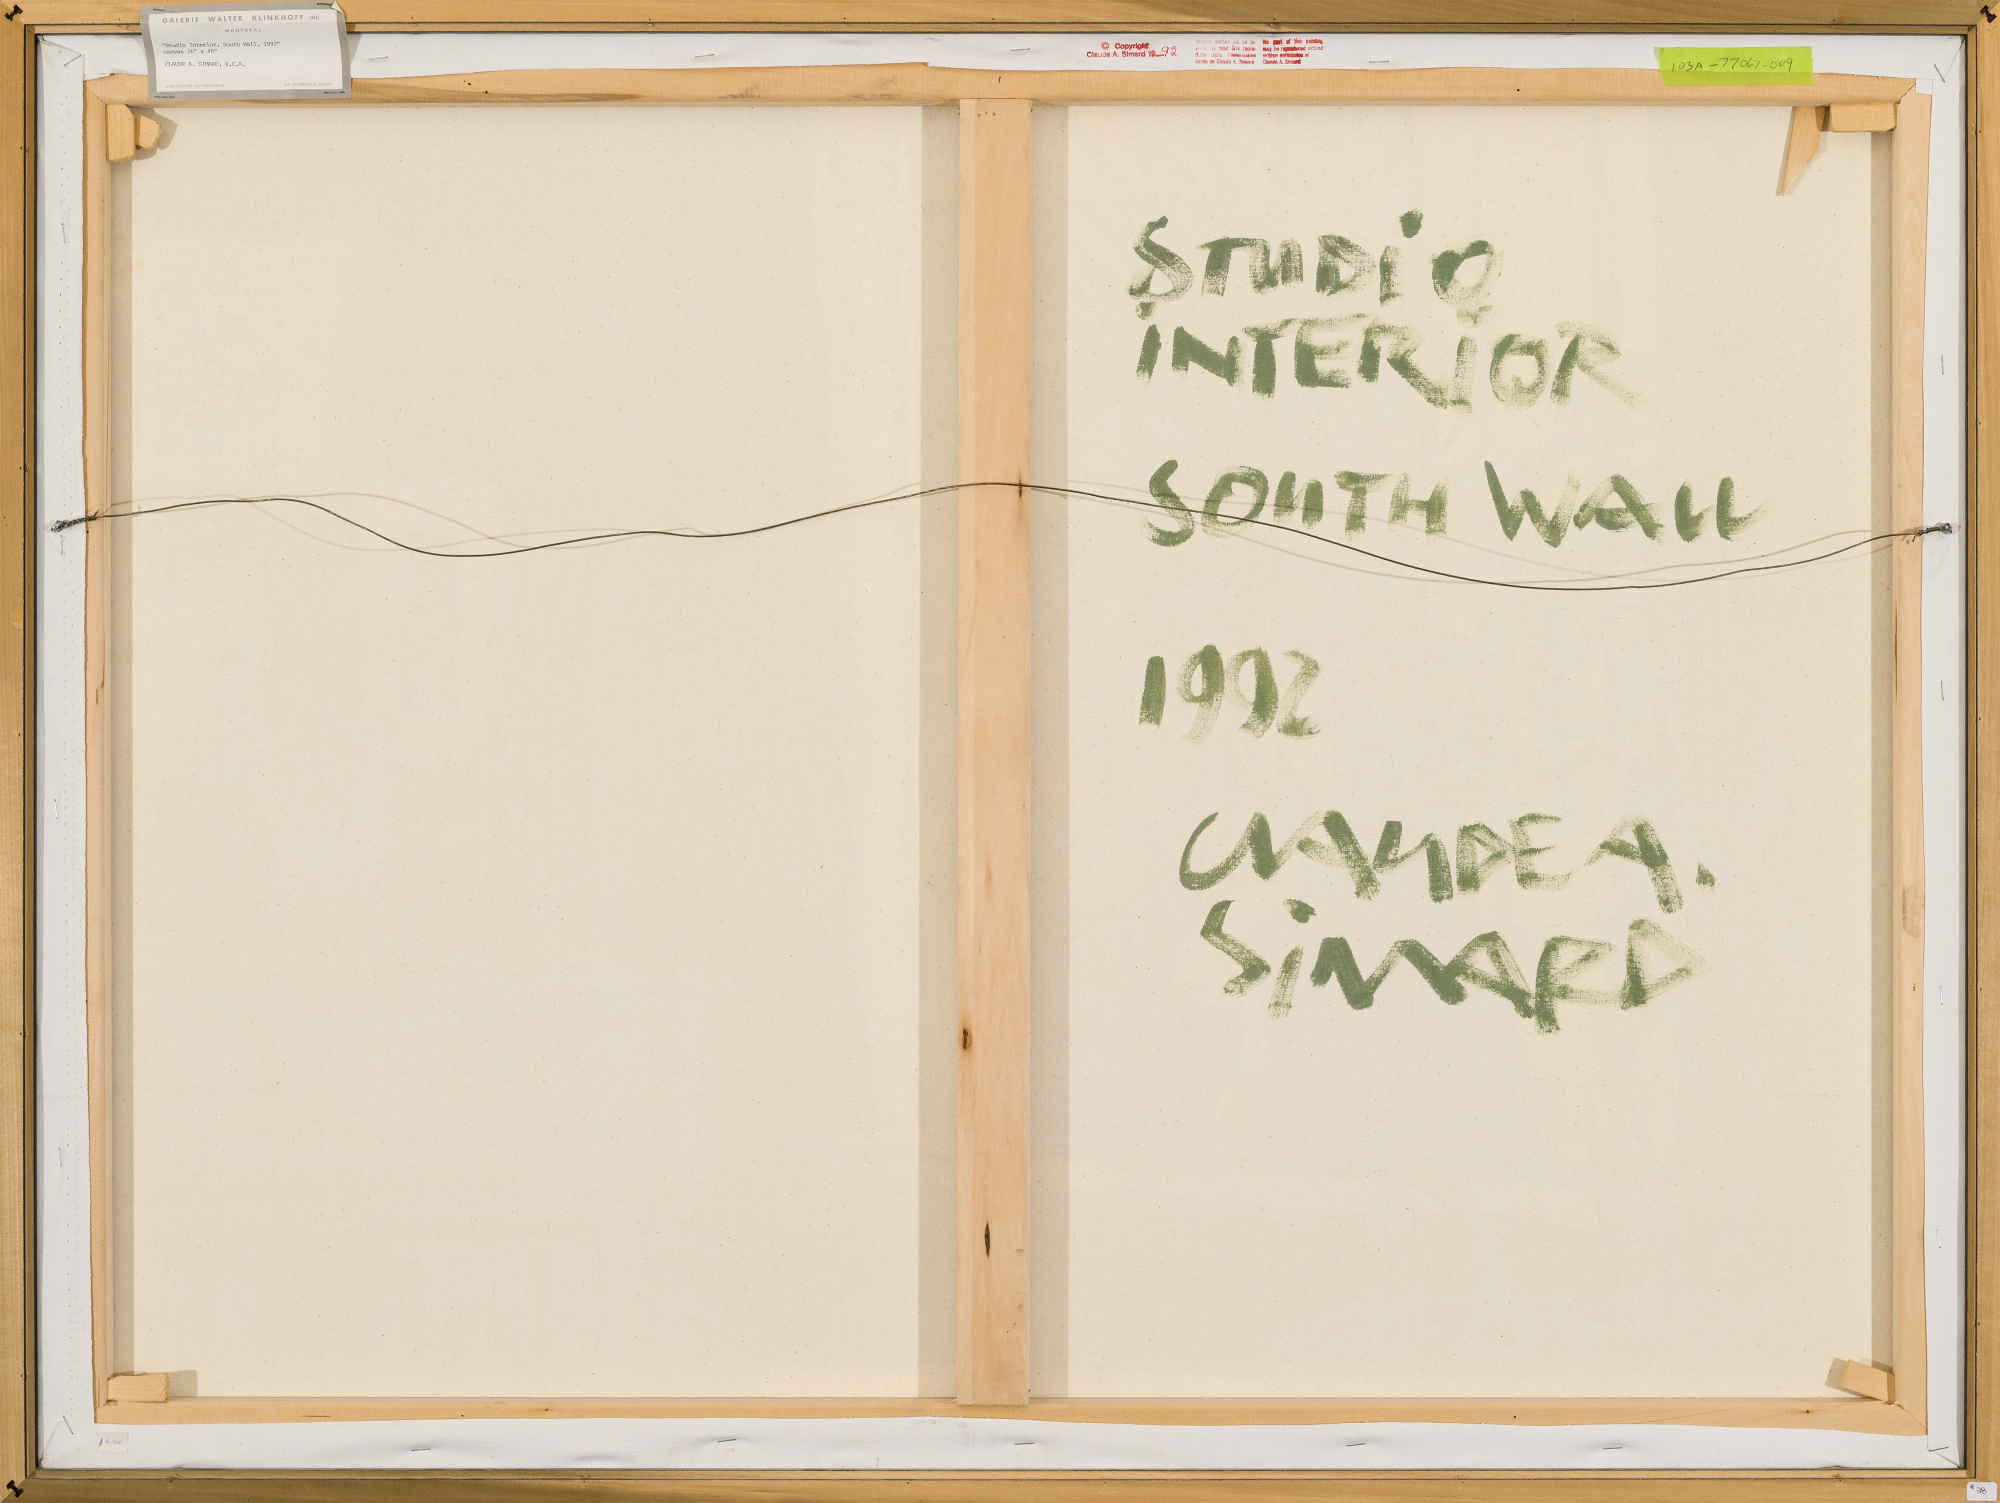 GALERIE WALTER KLINKHOFF INC.
MONTREAL
"Studio Interior, South Wall, 1992"
canvas 36" x 48"
CLAUDE A. SIMARD, R.C.A.
© Copyright
Claude A. Simard 19 92
No part of this painting
may be reproduced without
written permission of
Claude A. Simard
103A-77067-049
STUDiO
INTERiOR
SOUTH WALL
1992
CLAUDE A.
SiMARD